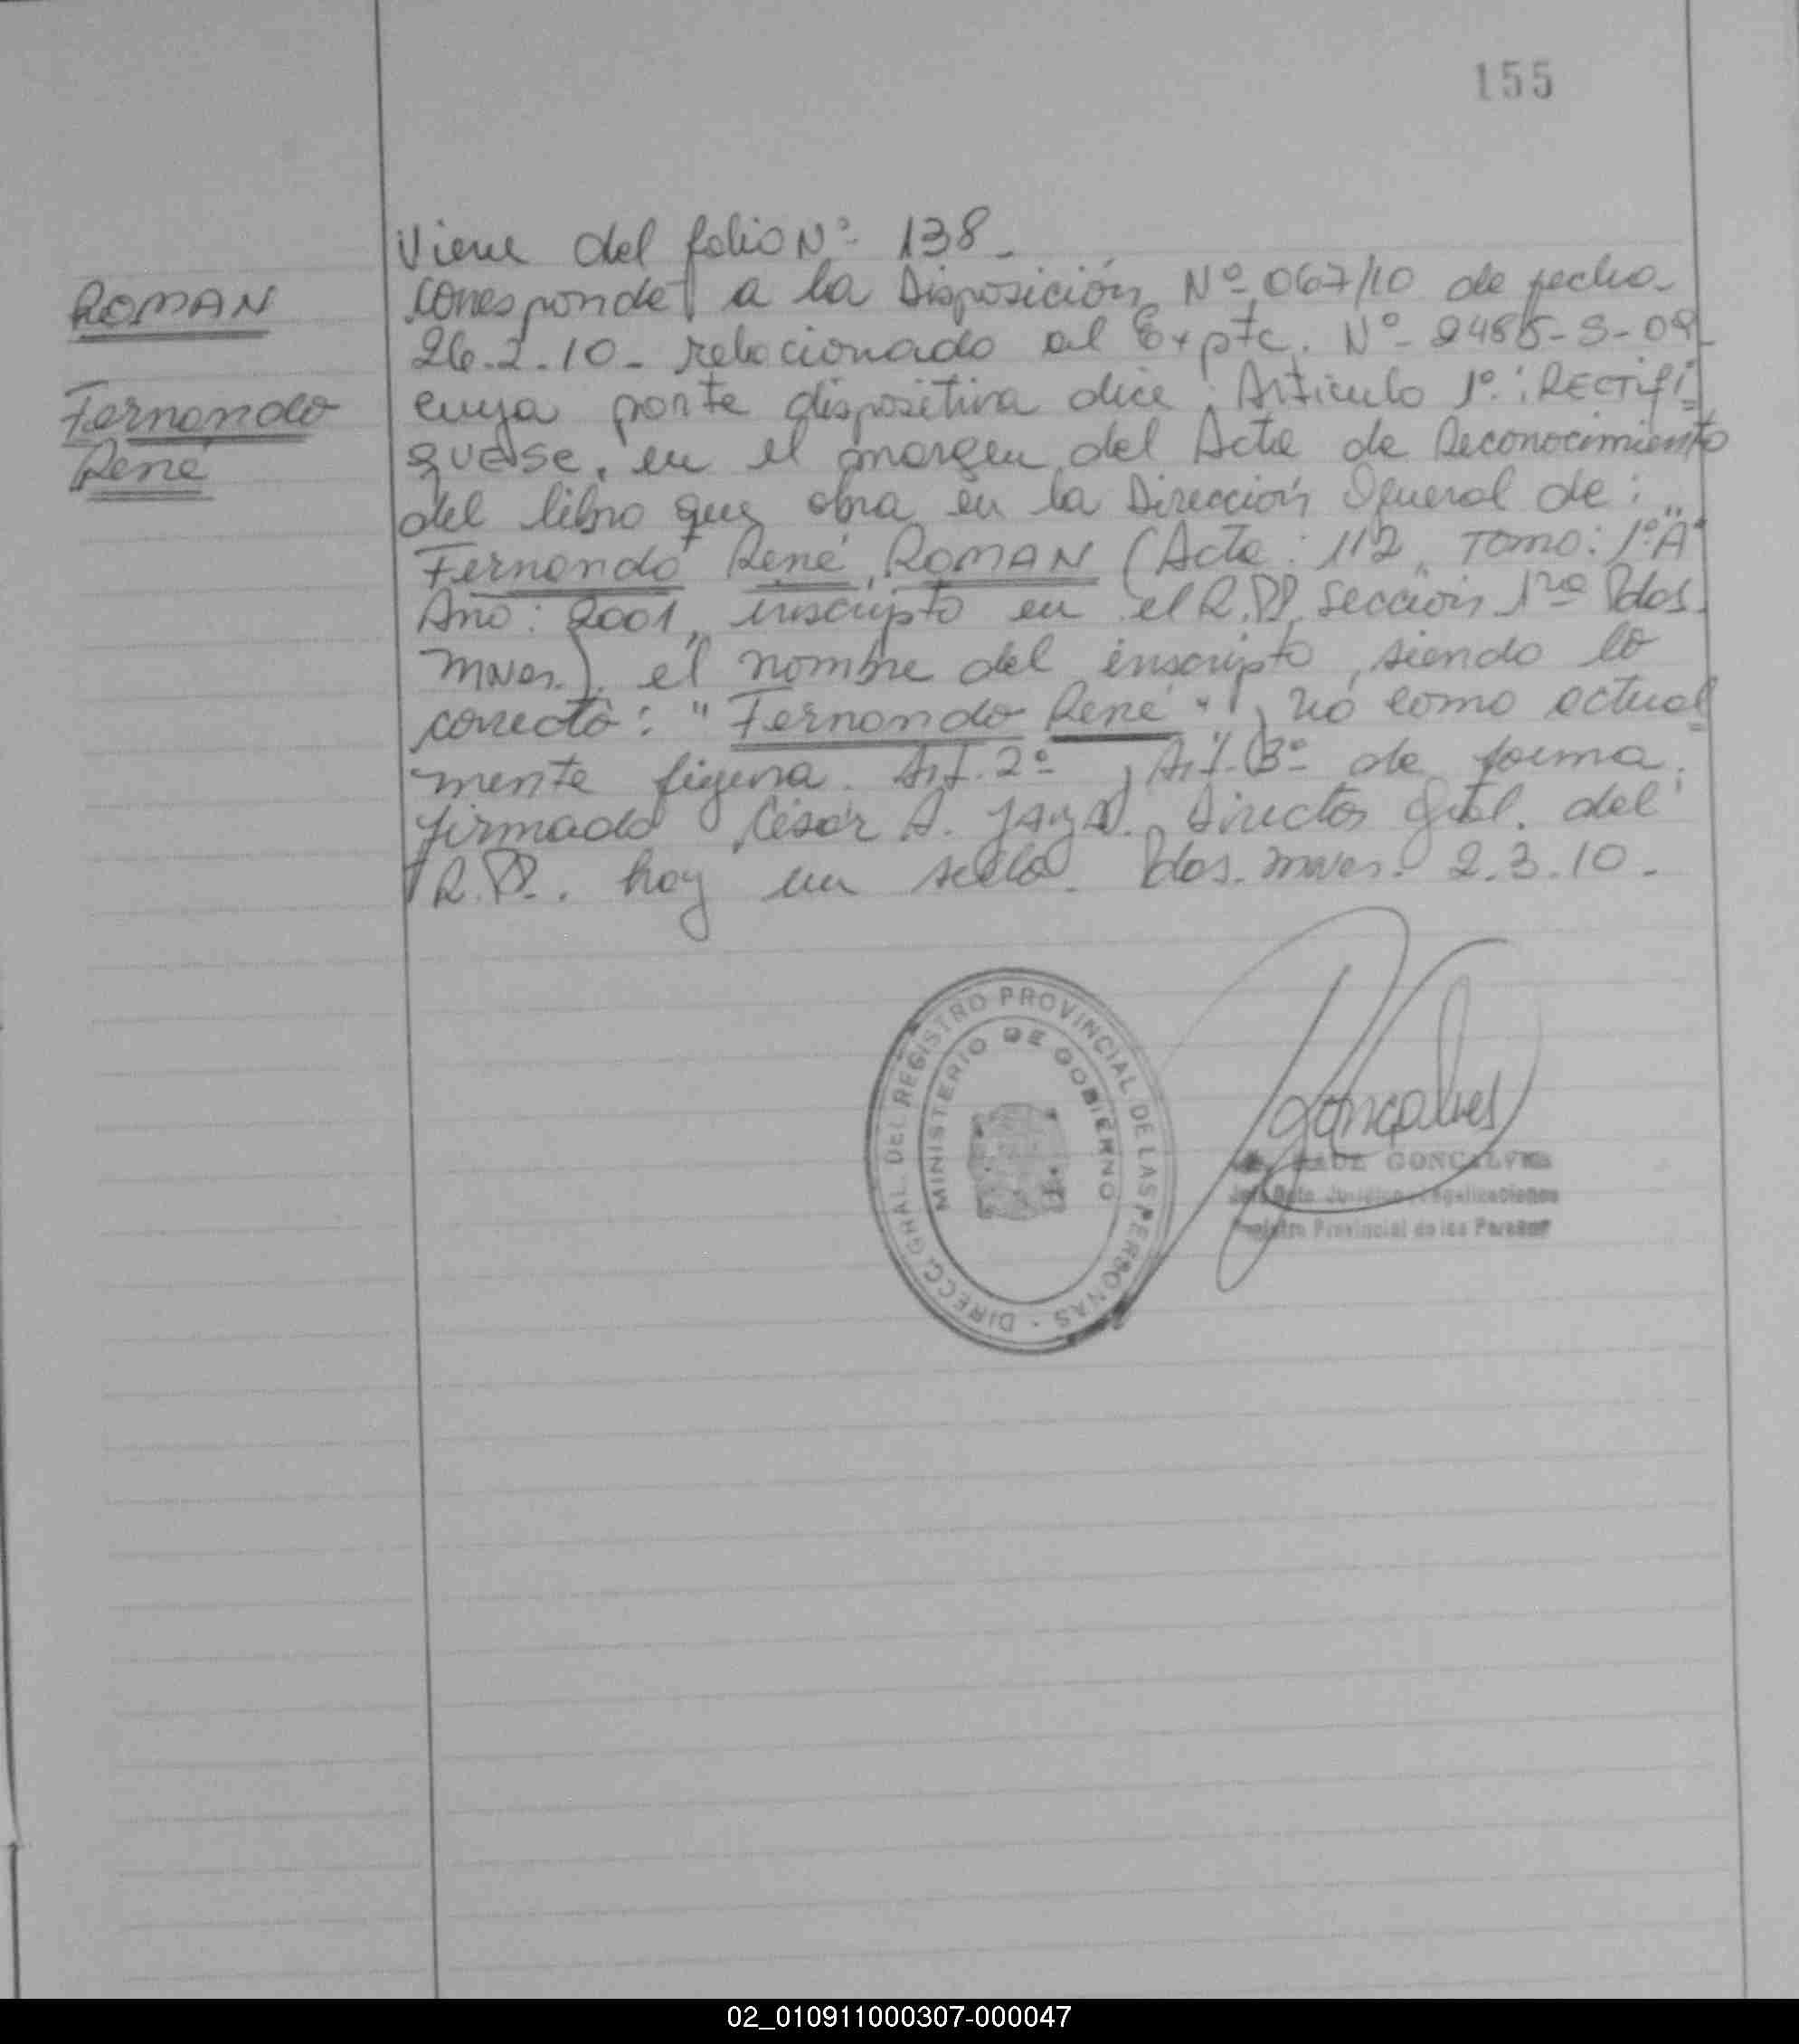 155
Viene del folio Nº 138_
ROMAN
Fernando
René
corresponde a la Disposición Nº 067/10 de fecha
26.2.10_ relacionado al Expte. Nº 2485-S-09_
cuya parte dispositiva dice: Artículo 1º: RECTIFI
quese, en el margen del Acta de Reconocimiento
del libro que obra en la Dirección General de:
Fernando René ROMAN (Acta: 112, Tomo: 1º "A"
Año: 2001, inscripto en el R.PP. Sección 1ra Pdas.
Mnes.) el nombre del inscripto, siendo lo
correcto: "Fernando René", no como actual
mente figura. Art. 2º, Art. 3º de forma.
firmado César A. Director Gral. del
R.PP. hay un sello. Pdas. Mnes. 2.3.10.
DIRECC. GRAL. DEL REGISTRO PROVINCIAL DE LAS PERSONAS
MINISTERIO DE GOBIERNO
Gonçalves
GONÇALVES
Registro Provincial de las Personas
02_010911000307-000047